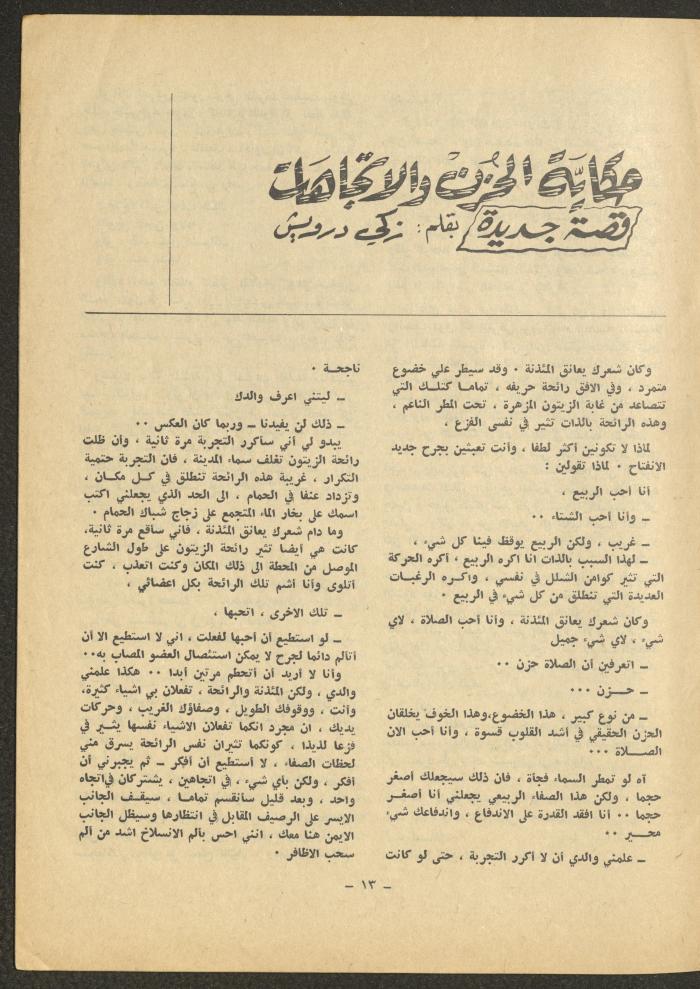 حكاية الحزن والاتجاهات
قصة جديدة بقلم : زكي درويش
وكان شعرك يعانق المئذنة ٠ وقد سيطر علي خضوع
متمرد ، وفي الافق رائحة حريفه ، تماما كتلك التي
تتصاعد من غابة الزيتون المزهرة ، تحت المطر الناعم ،
وهذه الرائحة بالذات تثير في نفسي الفزع ،
لماذا لا تكونين أكثر لطفا ، وأنت تعبثين بجرح جديد
الانفتاح ٠ لماذا تقولين :
أنا أحب الربيع ،
ـ وأنا أحب الشتاء ٠٠
ـ غريب ، ولكن الربيع يوقظ فينا كل شيء ،
ـ لهذا السبب بالذات انا اكره الربيع ، أكره الحركة
التي تثير كوامن الشلل في نفسي ، واكـره الرغبـات
العديدة التي تنطلق من كل شيء في الربيع ٠
وكان شعرك يعانق المئذنة ، وأنا أحب الصلاة ، لاي
شيء ، لاي شيء جميل
ـ اتعرفين أن الصلاة حزن ٠٠
ـ حــزن ٠٠٠
ـ من نوع كبير ، هذا الخضوع،وهذا الخوف يخلقان
الحزن الحقيقي في أشد القلوب قسوة ، وأنا أحب الان
الصـــلاة ٠٠٠
آه لو تمطر السماء فجأة ، فان ذلك سيجعلك أصغر
حجما ، ولكن هذا الصفاء الربيعي يجعلني أنا أصغـر
حجما ٠٠ أنا افقد القدرة على الاندفاع ، واندفاعك شيء
محـــير ٠٠
ـ علمني والدي أن لا أكرر التجربة ، حتى لو كانت
ناجحـة ٠
ـ ليتني اعرف والدك
ـ ذلك لن يفيدنا ـ وربما كان العكس ٠٠
يبدو لي أني سأكرر التجربة مرة ثانية ، وأن ظلت
رائحة الزيتون تغلف سماء المدينة ، فان التجربة حتمية
التكرار ، غريبة هذه الرائحة تنطلق في كـل مكـان ،
وتزداد عنفا في الحمام ، الى الحد الذي يجعلني اكتب
اسمك على بخار الماء المتجمع على زجاج شباك الحمام ٠
وما دام شعرك يعانق المئذنة ، فاني سأقع مرة ثانية،
كانت هي أيضا تثير رائحة الزيتون على طول الشارع
الموصل من المحطة الى ذلك المكان وكنت اتعذب ، كنت
أتلوى وأنا أشم تلك الرائحة بكل اعضائي ،
ـ تلك الاخرى ، اتحبها ،
ـ لو استطيع أن أحبها لفعلت ، اني لا استطيع الا أن
أتألم دائما لجرح لا يمكن استئصال العضو المصاب به٠٠
وأنا لا أريد أن أتحطم مرتين أبدا ٠٠ هكذا علمني
والدي ، ولكن المئذنة والرائحة ، تفعلان بي اشياء كثيرة،
وأنت ، ووقوفك الطويل ، وصفاؤك الغريب ، وحركات
يديك ، ان مجرد انكما تفعلان الاشياء نفسها يثـير في
فزعا لذيذا ، كونكما تثيران نفس الرائحة يسرق مني
لحظات الصفاء ، لا أستطيع أن أفكر ـ ثم يجبرني أن
أفكر ، ولكن بأي شيء ، في اتجاهين ، يشتركان في‌اتجاه
واحد ، وبعد قليل سأنقسم تمامـا ، سيقـف الجانب
الايسر على الرصيف المقابل في انتظارها وسيظل الجانب
الايمن هنا معك ، انني احس بألم الانسلاخ اشد من ألم
سحب الاظافر ٠
ـ ١٣ ـ